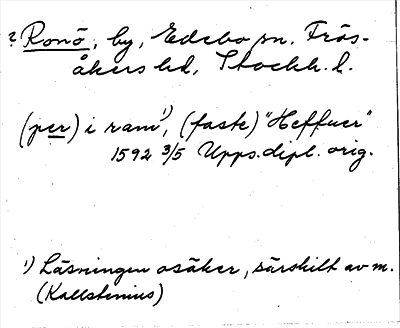 ? Ronö, by, Edebo sn. Frös-
åkers hd, Stockh. l.
(per) i ram¹⁾, (faste) "Heffuer"
1592 3/5 Upps.dipl. orig.
¹⁾ Läsningen osäker, särskilt av m.
(Kallstenius)